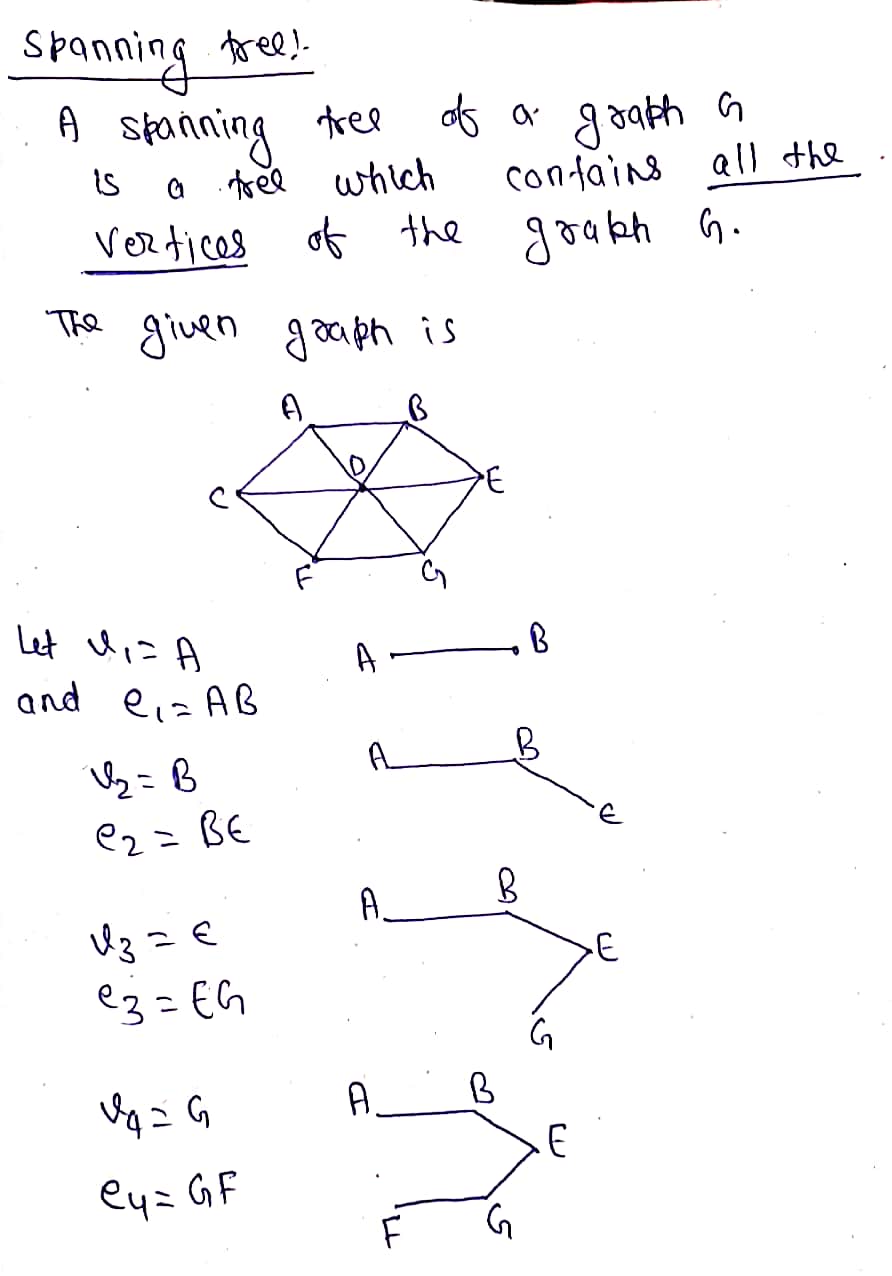 Spanning tree:-
A spanning tree of a graph G
is a tree which contains all the
vertices of the graph G.
The given graph is
A B
D
C E
F G
Let v1 = A A B
and e1 = AB
v2 = B A B
e2 = BE E
A B
v3 = E E
e3 = EG
G
v4 = G A B
E
e4 = GF
F G